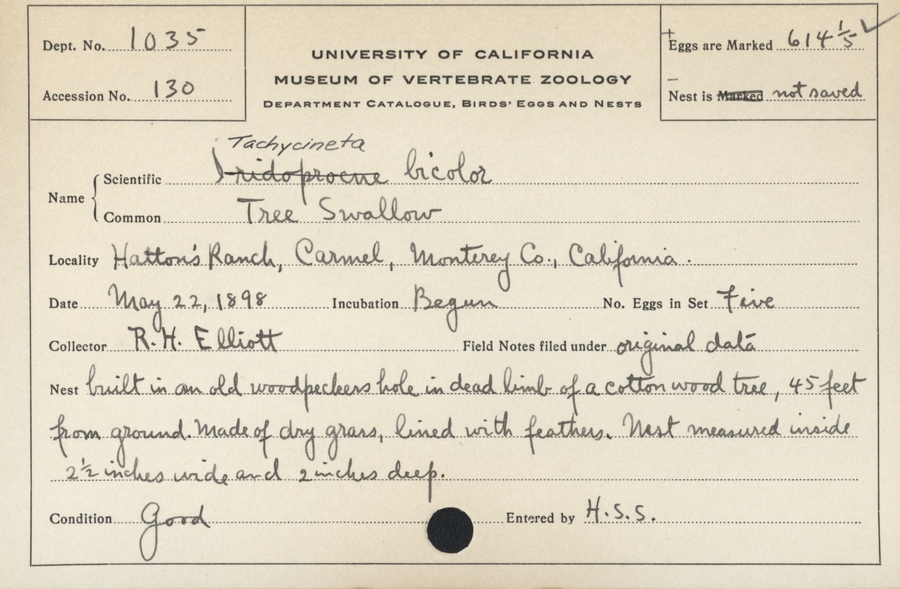 Dept. No. 1035
Accession No. 130
UNIVERSITY OF CALIFORNIA
MUSEUM OF VERTEBRATE ZOOLOGY
DEPARTMENT CATALOGUE, BIRDS' EGGS AND NESTS
+
Eggs are Marked 614 1/5 ✓
–
Nest is Marked not saved
Tachycineta
Name { Scientific Iridoprocne bicolor
Common Tree Swallow
Locality Hatton's Ranch, Carmel, Monterey Co., California.
Date May 22, 1898 Incubation Begun No. Eggs in Set Five
Collector R. H. Elliott Field Notes filed under original data
Nest built in an old woodpeckers hole in dead limb of a cottonwood tree, 45 feet
from ground. Made of dry grass, lined with feathers. Nest measured inside
2½ inches wide and 2 inches deep.
Condition Good Entered by H.S.S.